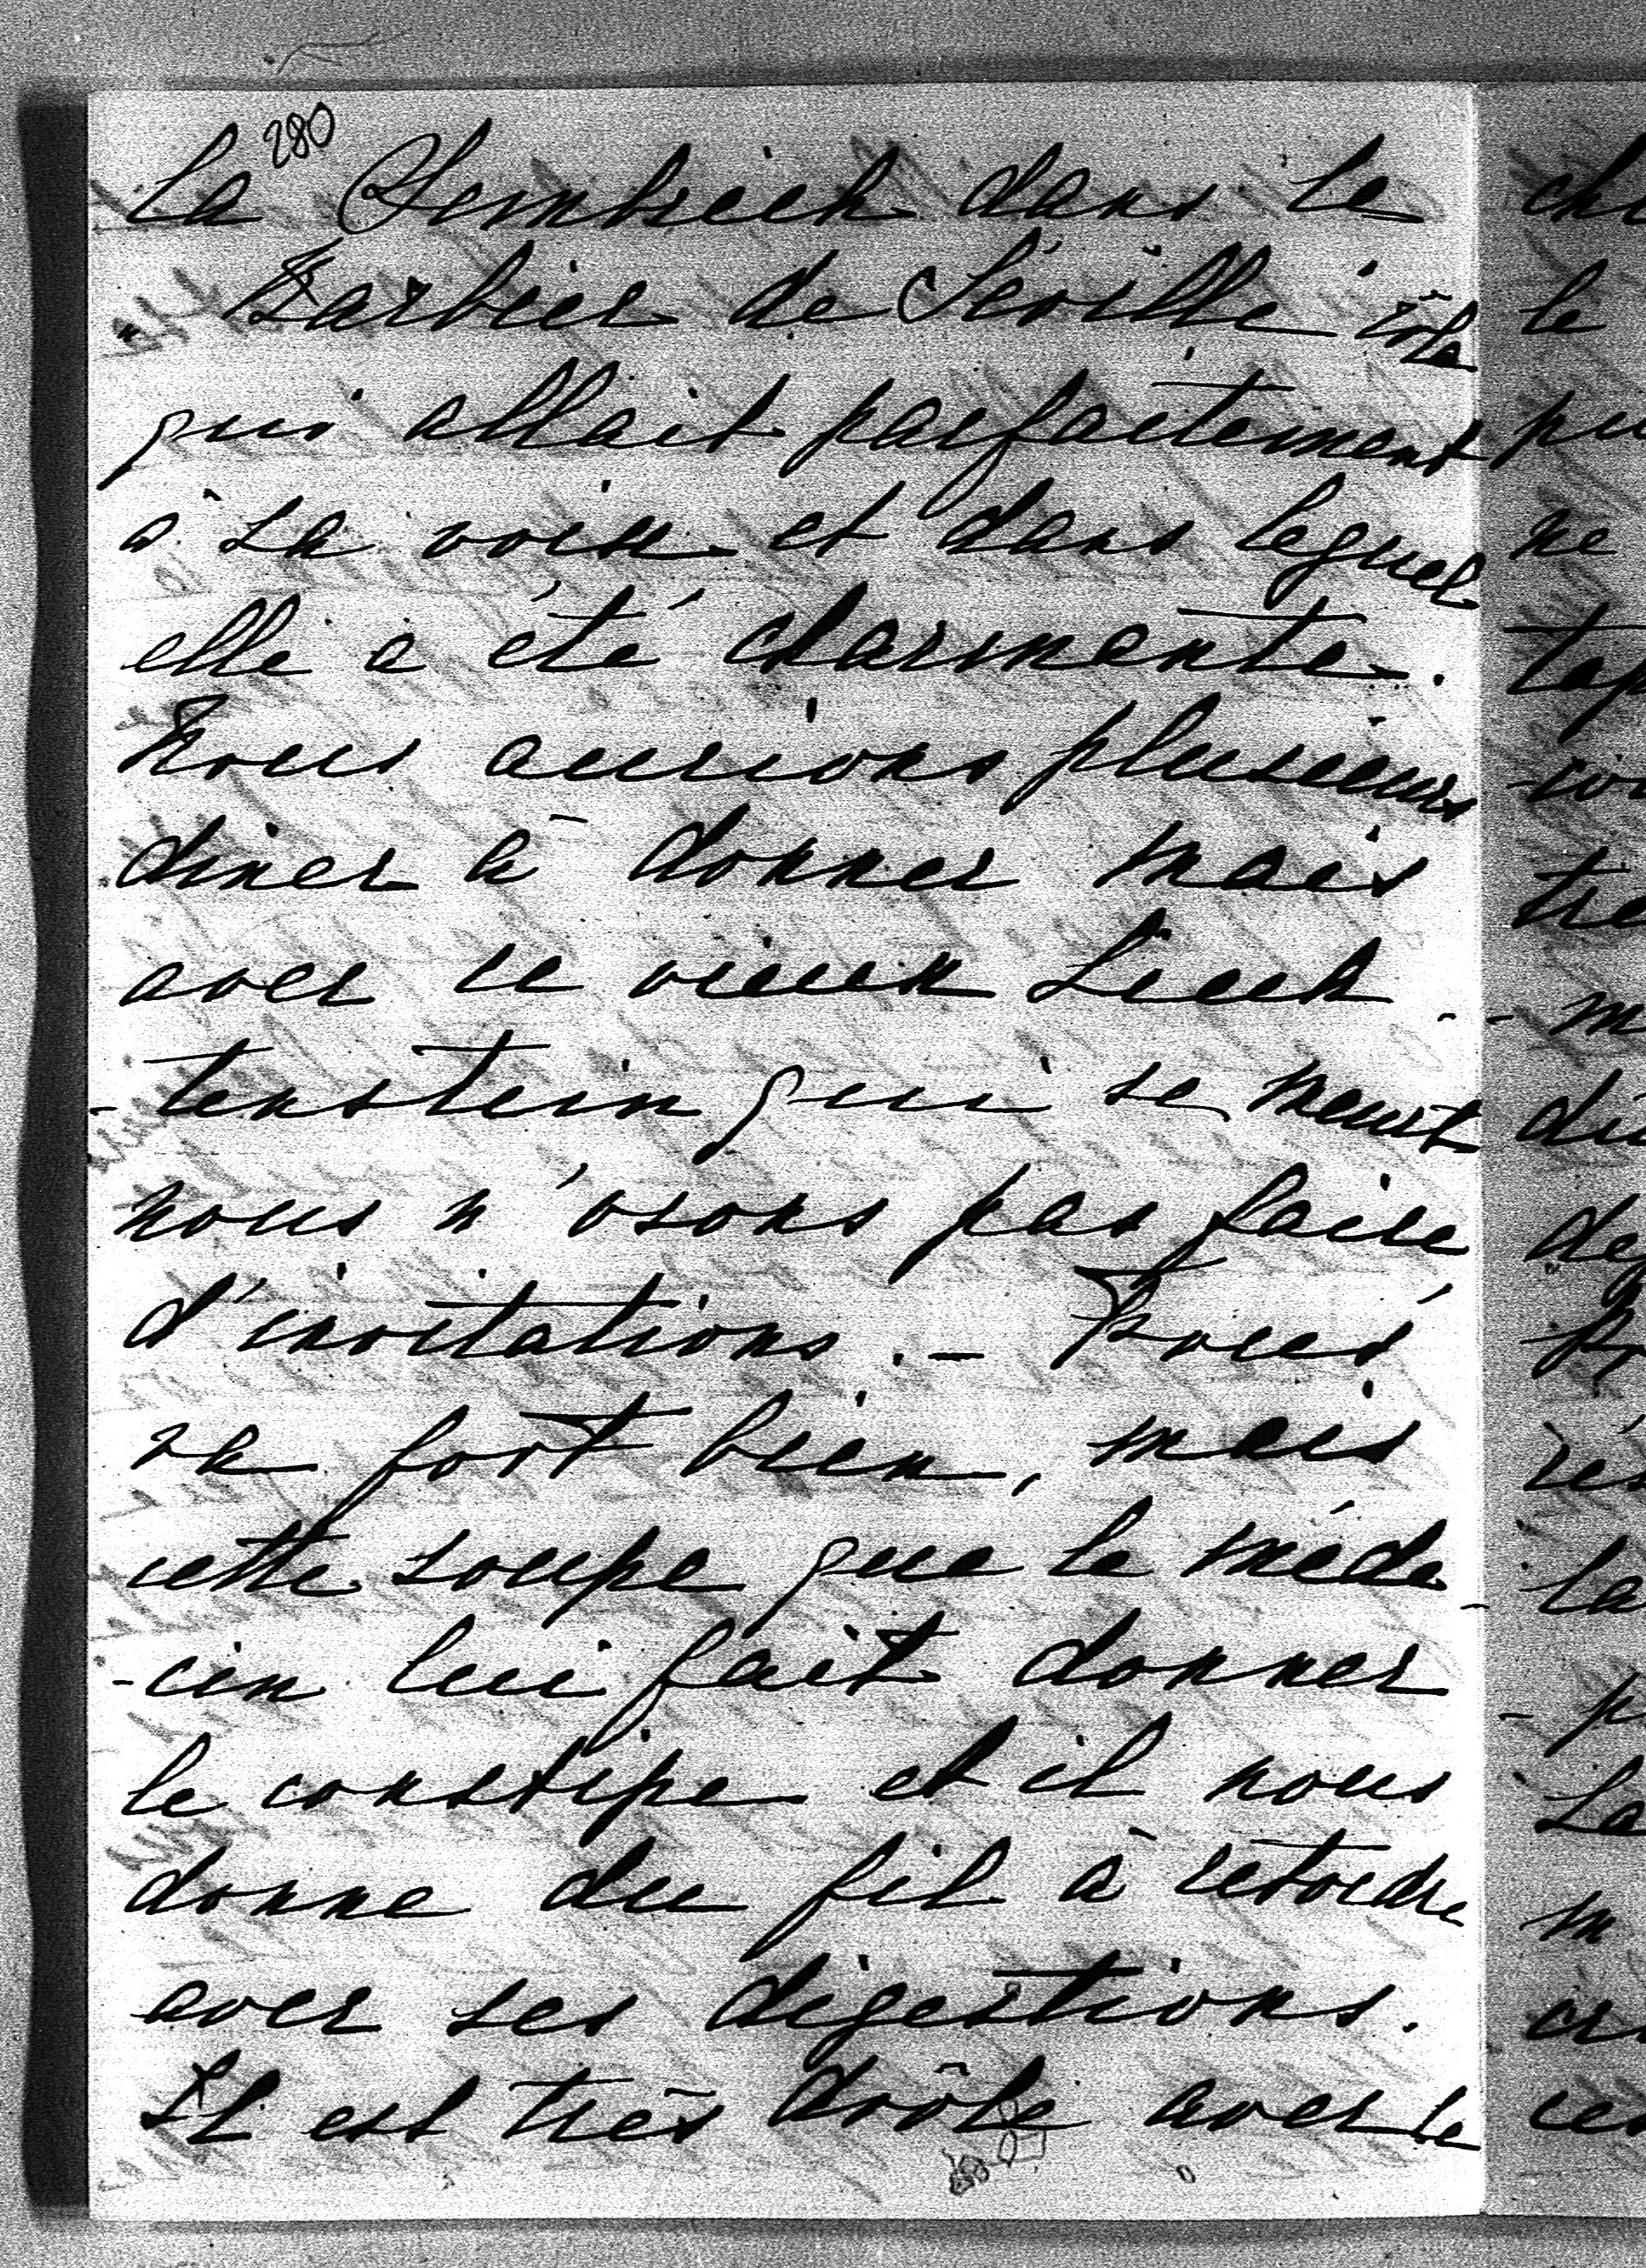 280
la Sembrich dans le
Barbier de Séville rôle
qui allait parfaitement
à sa voix et dans lequel
elle a été charmante.
Nous aurions plusieurs
diner à donner mais
avec ce vieux Liech-
-tenstein qui se meurt
nous n'osons pas faire
d'invitations. –
va fort bien, mais
cette soupe que le méde-
-cin lui fait donner
le constipe et il nous
donne du fil à retordre
avec ses digestions.
Il est très drôle avec le